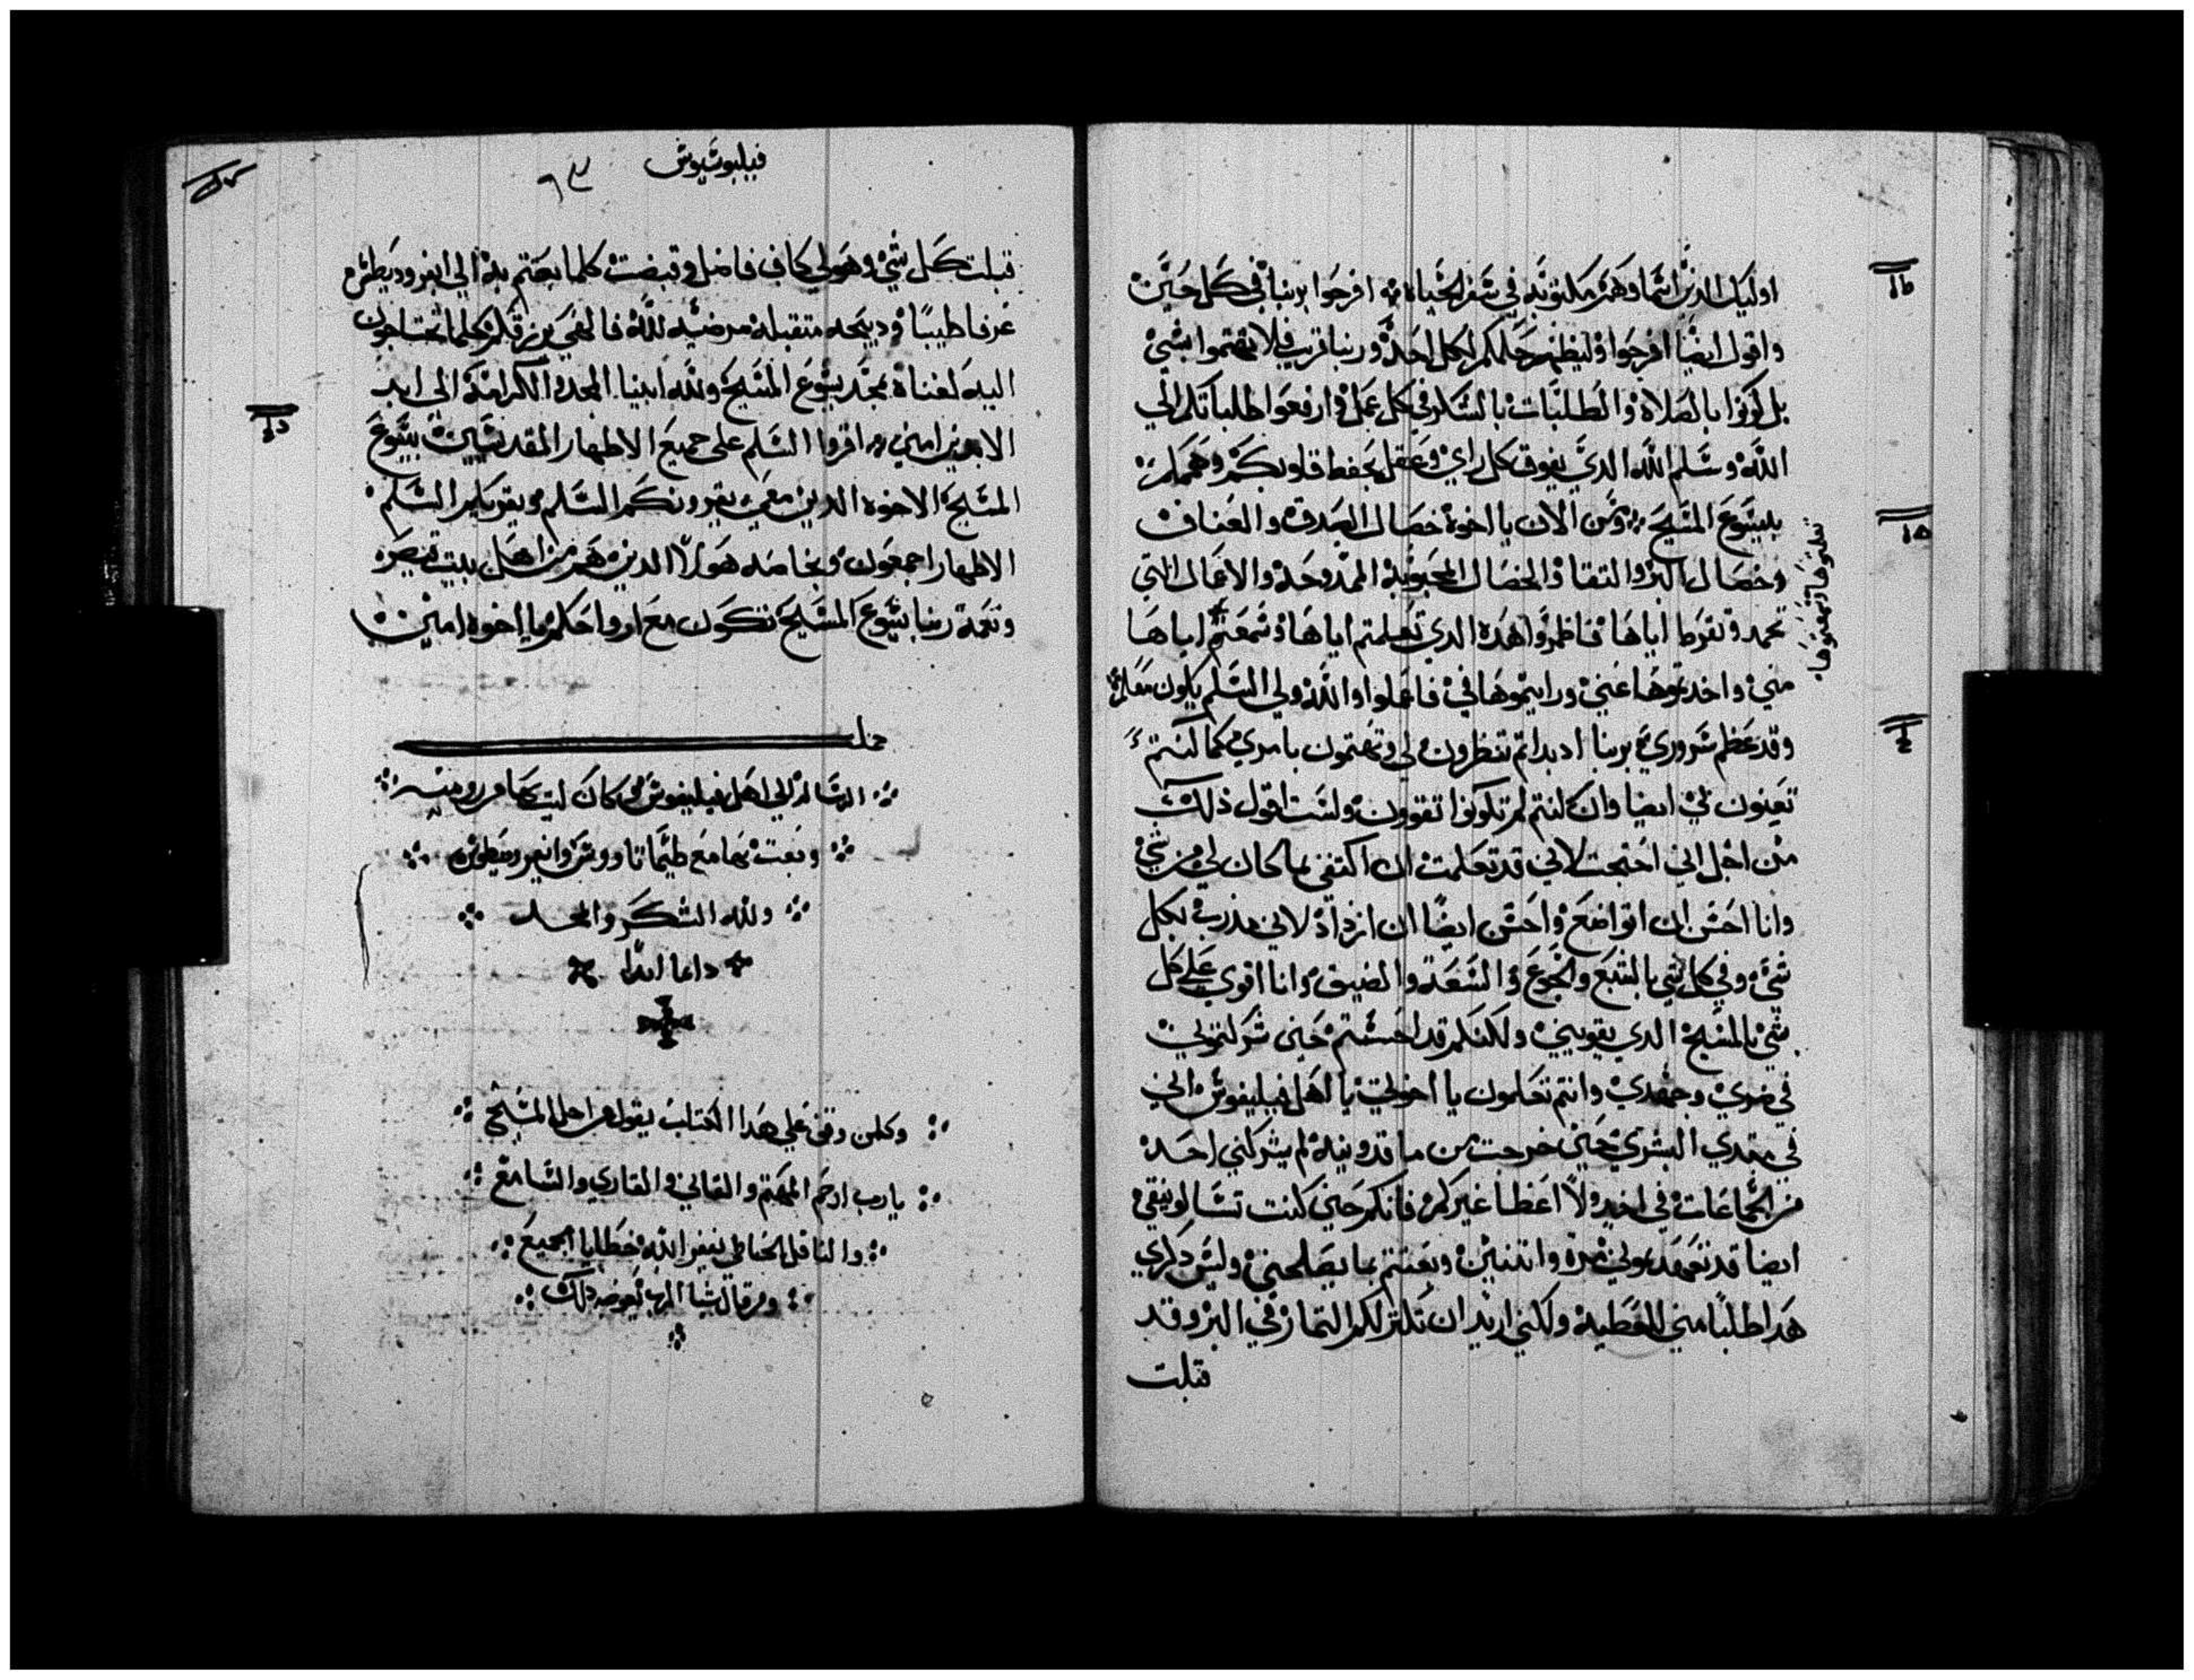 اوليك الدين اسماوهم مكتوبه في سفر الحياه افرحوا بربنا في كل حين
واقول ايضا افرحوا وليظهر حلمكم لكل احد وربنا قريب فلا تهتموا بشي
بل كونوا بالصلاة والطلبات بالشكر في كل عمل وارفعوا طلباتكم الي
الله وسلم الله الدي يفوق كل راي وعقل يحفظ قلوبكم وهممكم
بيسوع المسيح ومن الان يا اخوة خصال الصدق والعفاف
وخصال البر والتقا والخصال المحبوبة الممدوحة والاعمال التي
تحمد وتقرط اياها فاظمروا هده الدي تعلمتم اياها وسمعتم اياها
مني واخدتموها عني ورايتموها في فاعملوا والله ولي السلم يكون معكم
وقد عظم سروري بربنا اد بداتم تنظرون لي وتهتمون بامري كما كنتم
تعنون بي ايضا وان كنتم لم تكونوا تقوون ولست اقول ذلك
من اجل اني احتجت لاني قد تعلمت ان اكتفي بما كان لي من شي
وانا احسن ان اتواضع واحسن ايضا ان ازداد لاني مدرب بكل
شي وفي كل شي بالشبع والجوع والسعة والضيق وانا اقوي علي كل
شي بالمسيح الدي يقويني ولكنكم قد احسنتم حين شركتموني
في ضري وجهدي وانتم تعلمون يا اخوتي يا اهل فيليفوس اني
في مبتدي البشري حين خرجت من ماقدونيه لم يشركني احد
من الجماعات في اخد ولا اعطا غيركم فانكم حين كنت تسالونيقي
ايضا قد تعهدتموني مرة واتنتين وبعتتم بما يصلحني وليس دكري
هدا طلبا مني للعطية ولكني اريد ان تكتر لكم التمار في البر وقد
قبلت
فيليبوسيوس
قبلت كل شي وهو لي كاف فاضل وقبضت كلما بعتتم به الي ابفروديطس
عرفا طيبا ودبيحه متقبلة مرضيه لله فالهي يرزقكم كلما تحتاجون
اليه لغناة بمجد يسوع المسيح ولله ابينا المجد والكرامة الى ابد
الابدين امين اقروا السلم على جميع الاطهار المقدسين بيسوع
المسيح الاخوه الدين معي يقرونكم السلم ويقريكم السلم
الاطهار اجمعون وبخاصه هولا الدين هم من اهل بيت قيصر
ونعمة ربنا يسوع المسيح تكون مع ارواحكم يا اخوه امين
الرساله الي اهل فيليفوس كان كتبها من روميه
وبعت بها مع طيماتاووس وابفروديطوس
ولله الشكر والمجد
دايما ابدا
وكلمن وقف علي هدا الكتاب يقول من اجل المسيح
يارب ارحم المهتم والقاني والقاري والسامع
والناقل الخاطي يغفر الله خطايا الجميع
ومن قال شيا الرب يعوضه دلك